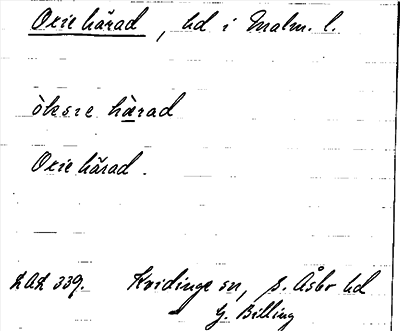 Oxie härad, hd i Malm. l.
òksıe hàrad
Oxie härad.
LAL 339. Kvidinge sn, S. Åsbo hd
G. Billing